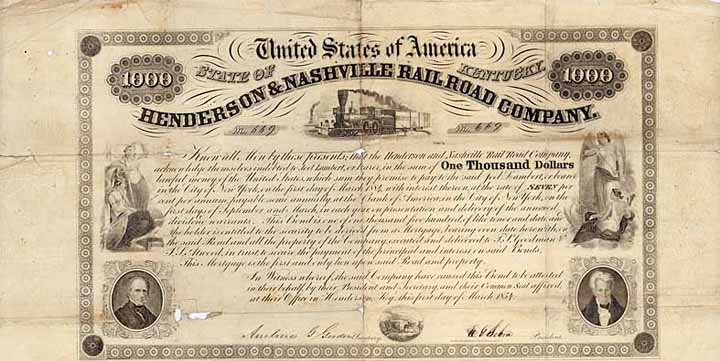 United States of America
1000 STATE OF KENTUCKY 1000
HENDERSON & NASHVILLE RAIL ROAD COMPANY.
No. 669 No. 669
Know all Men by these Presents, that the Henderson and Nashville Rail Road Company,
acknowledge themselves indebted to Joel Lambert, or bearer, in the sum of One Thousand Dollars
lawful money of the United States, which sum they promise to pay to the said Joel Lambert, or bearer
in the City of New York, on the first day of March with interest thereon, at the rate of SEVEN per
cent per annum payable semi annually, at the Bank of America, in the City of New York, on the
first days of September and March, in each year on presentation and delivery of the annexed
dividend warrants. This Bond is one of one thousand five hundred, of like tenor and date and
the holder is entitled to the security to be derived from a Mortgage, bearing even date herewith, on
the said Road and all the property of the Company, created and delivered to T. P. Goodman &
Atwood, in trust, to secure the payment of the principal and interest on said Bonds.
This Mortgage is the first and only lien upon said Road and property.
In Witness whereof, the said Company have caused this Bond to be attested
in their behalf, by their President and Secretary, and their Common Seal affixed,
at their Office in Henderson, Ky. this first day of March 1854.
Secretary President